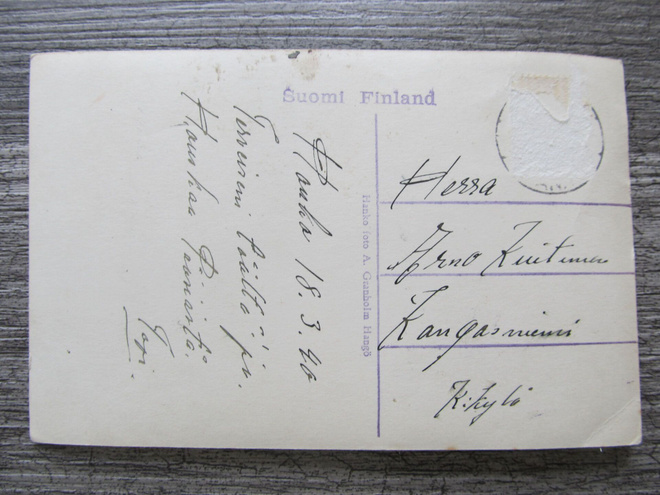 Suomi Finland
Hanko 18.3.40
Terveiseni täältä ja
Hauskaa Pääsiäistä.
Topi.
Hanko foto A. Granholm Hangö
Herra
Arno Kuitunen
Kangasniemi
K:kylä